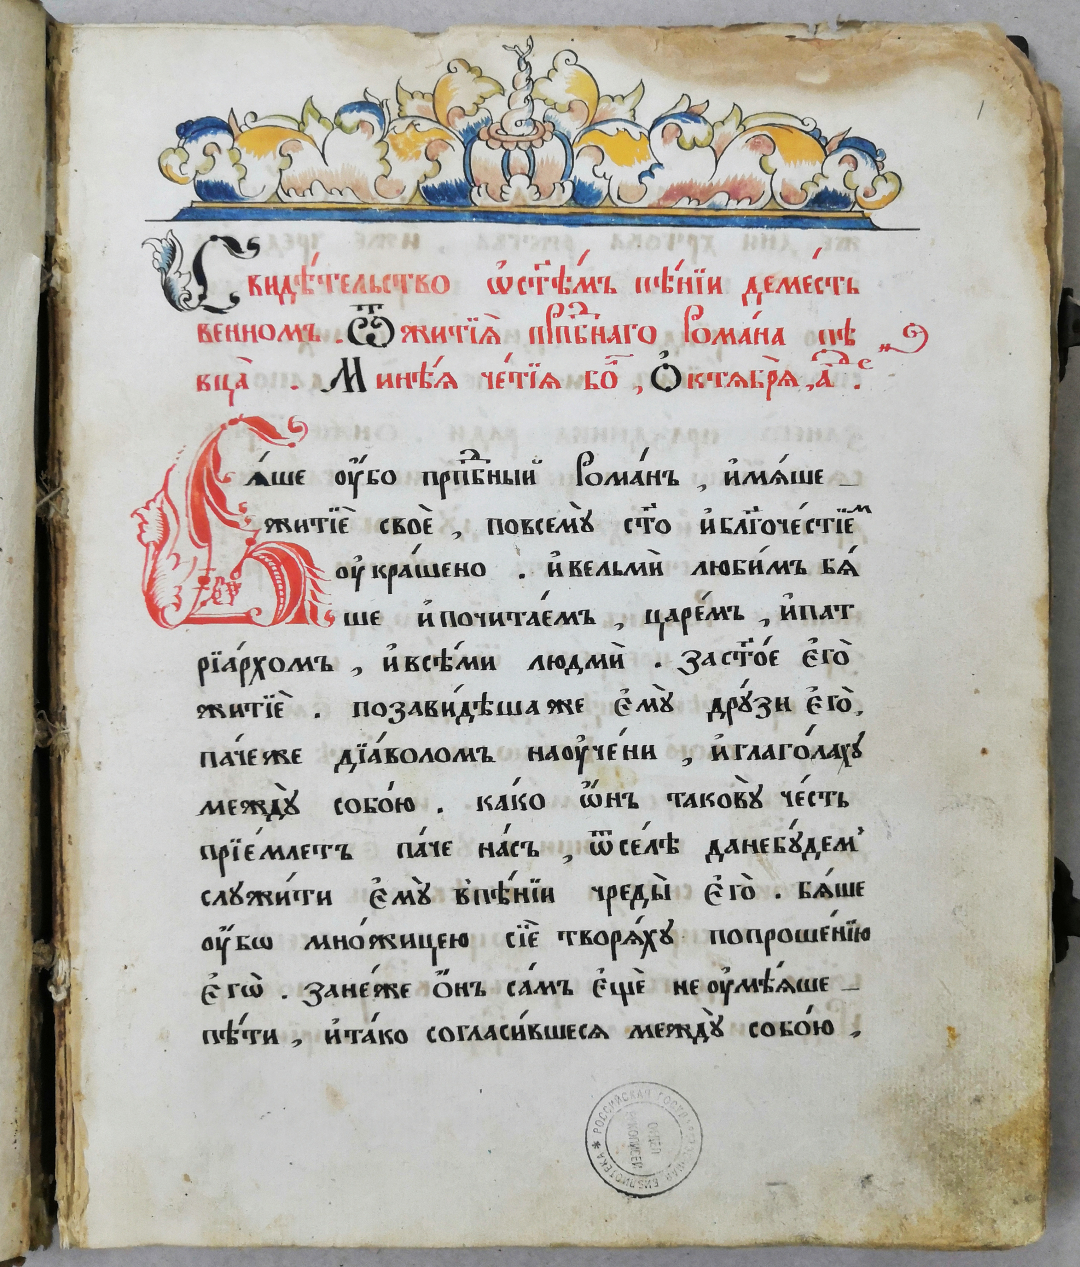 1
Свидѣ́тельство ѡ҆ст҃ѣ́мъ пѣ́нїи деме́сть
венномъ . Ѿжитїѧ̀ прпⷣбнаго Рома́на пѣ
вца̀ . Минѣ́ѧ че́тїѧ
Бѧ́ше оу҆́бо прпⷣбный Рома́нъ , и҆мѧ́ше
житїѐ своѐ , повсемꙋ̀ ст҃о и҆блг҃оче́стїеⷨ
оу҆кра́шено . и҆вельмѝ люби́мъ бѧ́
ше и҆почита́емъ , царе́мъ , и҆пат
рїа́рхомъ , и҆всѣ́ми людмѝ . Заст҃о́е є҆гѡ̀
житїѐ . позави́дѣша же є҆мꙋ̀ дрꙋ́зи є҆гѡ̀,
па́чеже дїа́воломъ наоу҆че́ни , и҆глаго́лахꙋ
междꙋ̀ собо́ю . ка́кѡ ѻ҆́нъ таковꙋ̀ че́сть
прїе́млетъ па́че на́съ , ѿсе́лѣ данебꙋ́дем̾
слꙋжи́ти є҆мꙋ̀ в̾пѣ́нїи чреды̀ є҆гѡ̀ . бѧ́ше
оу҆́бѡ мно́жицею сїѐ творѧ́хꙋ попроше́нїю
є҆гѡ̀ . Зане́же ѻ҆́нъ са́мъ є҆щѐ не оу҆мѣ́ѧше
пѣ́ти , и҆та́ко согласи́вшесѧ междꙋ̀ собо́ю ,
РОССИЙСКАЯ ГОСУДАРСТВЕННАЯ БИБЛИОТЕКА *
ОТДЕЛ
РУКОПИСЕЙ